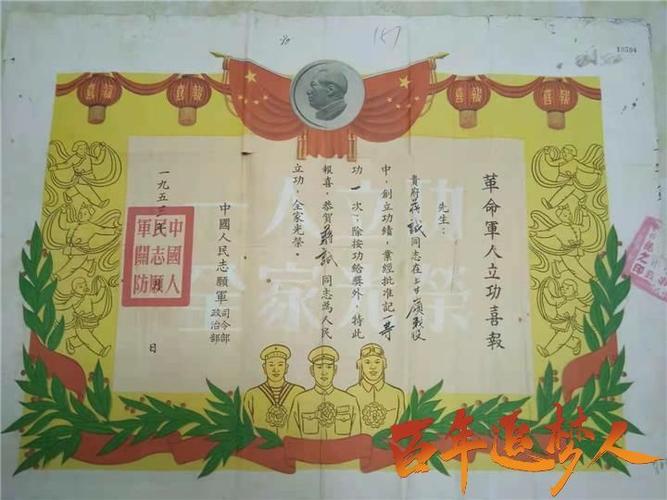 喜報
喜報
革命軍人立功喜報
先生：
貴府蔣誠同志在上甘嶺戰役
中，創立功績，業經批准記一等
功一次；除按功給獎外，特此
報喜，恭賀蔣誠同志為人民
立功，全家光榮。
中國人民志願軍司令部政治部
一九五三年 月 日
中國人
民志願
軍關防
一人立功
全家光榮
百年追梦人